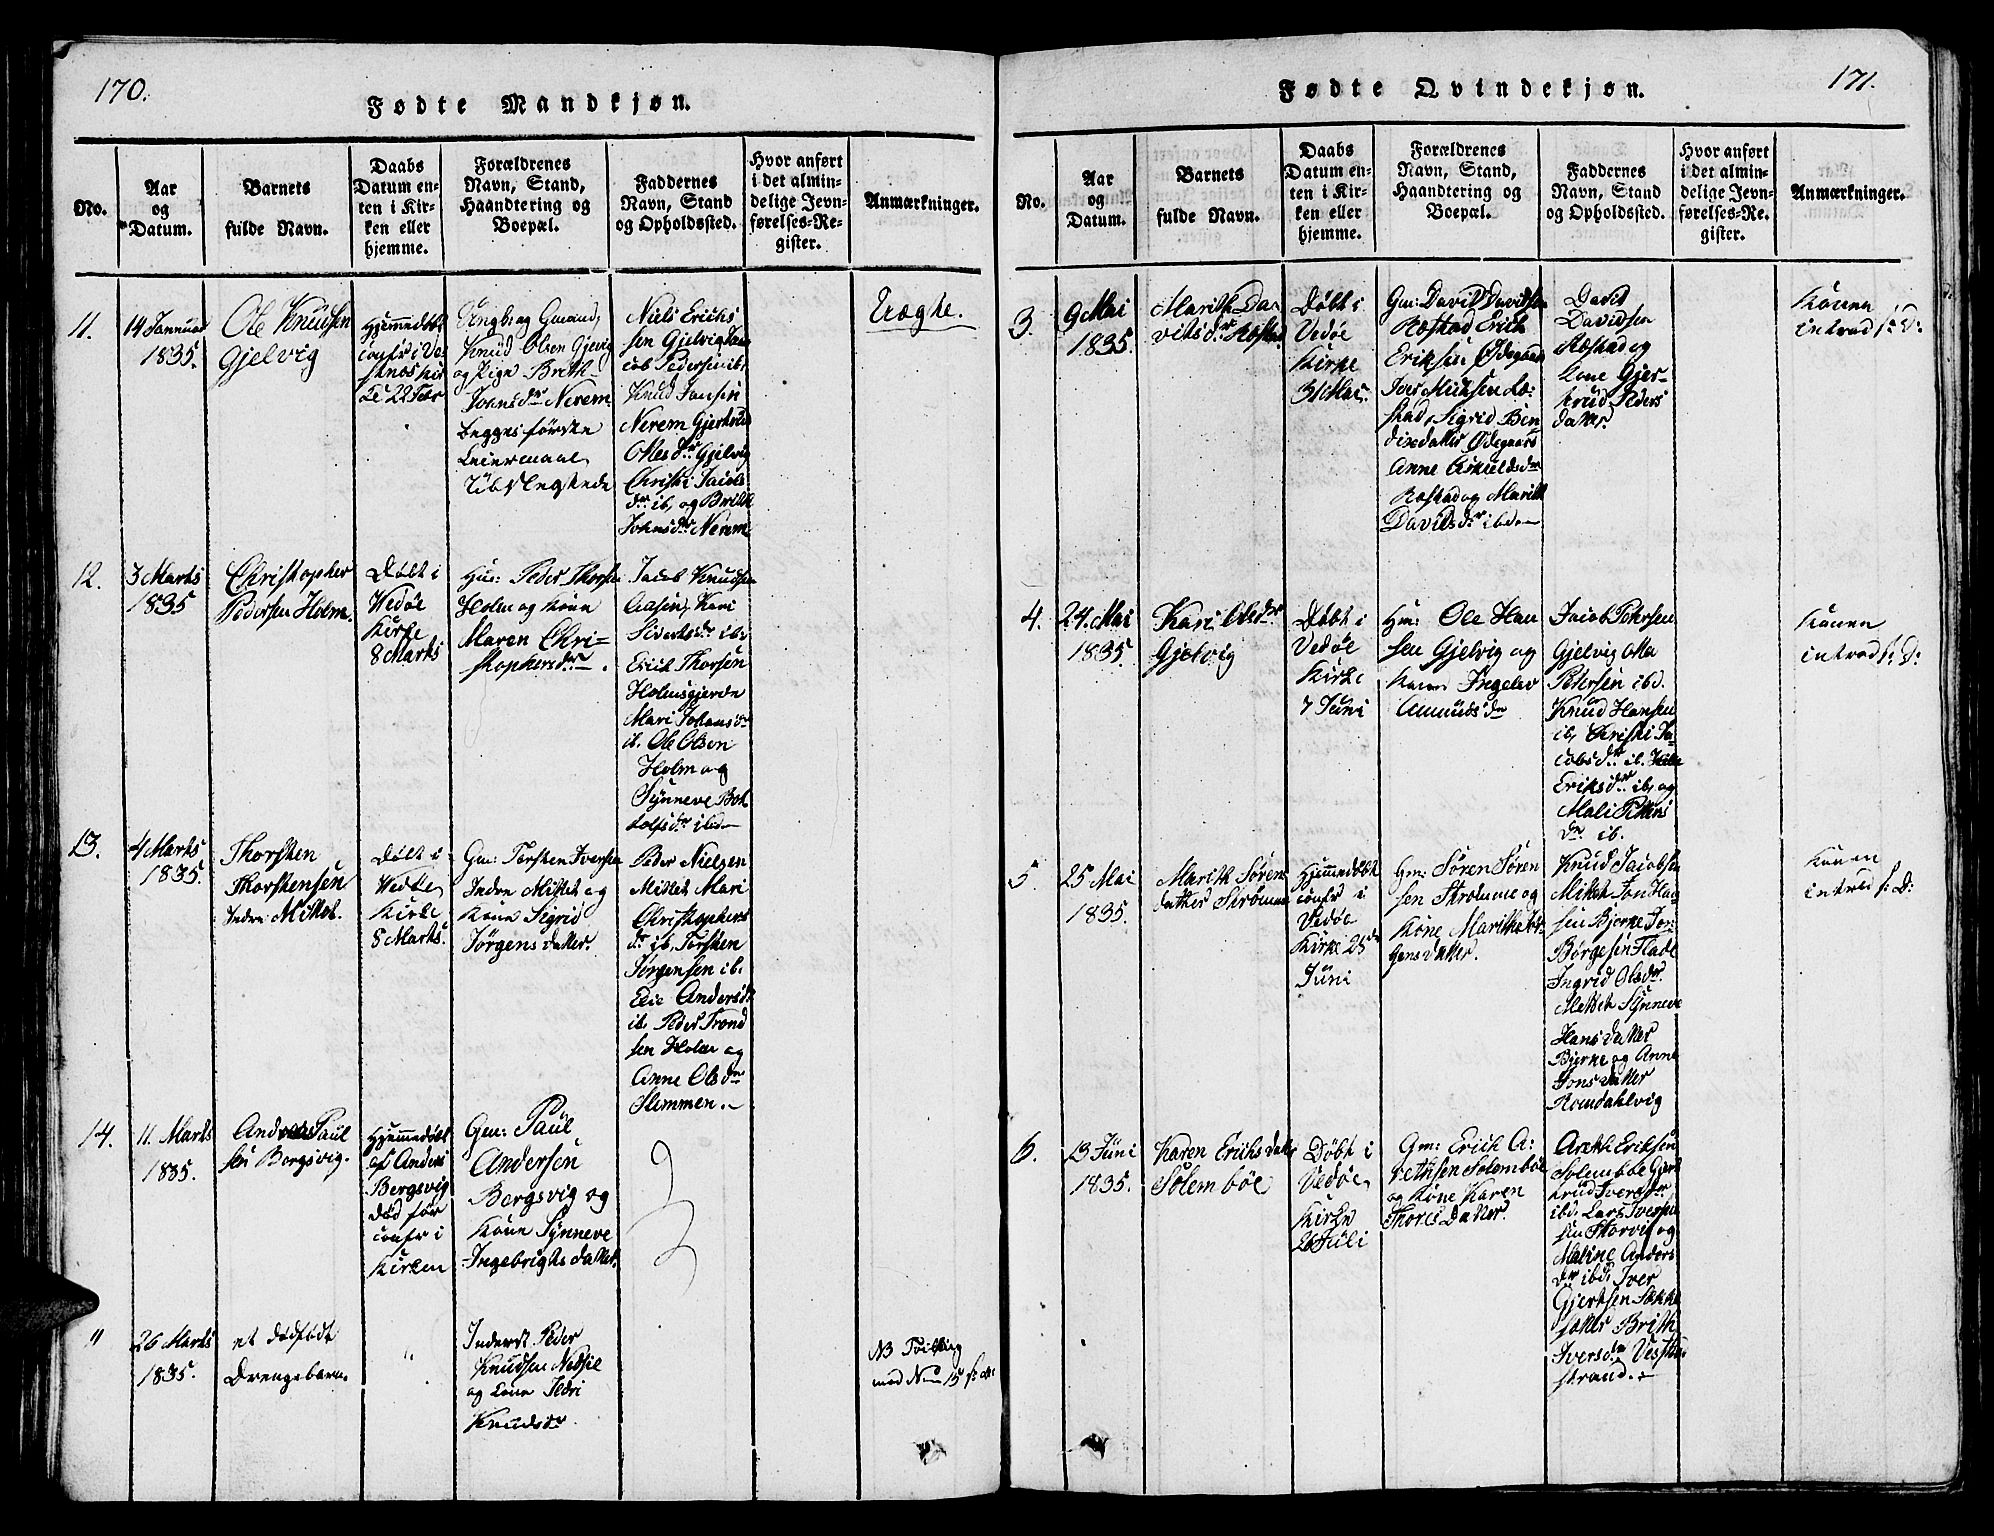 170.
Fødte Mandkjøn.
No.
Aar
og
Datum.
Barnets
fulde Navn.
Daabs
Datum en-
ten i Kir-
ken eller
hjemme.
Forældrenes
Navn, Stand,
Haandtering og
Boepæl.
Faddernes
Navn, Stand
og Opholdssted.
Hvor anført
i det almin-
delige Jevn-
førelses-Re-
gister.
Anmærkninger.
11.
14 Januar
1835.
Ole Knudsen
Gjelvig
Hjemmedøbt
confr i Ve-
stnes Kir
ke 22 Febr
Ungk og Gmand,
Knud Olsen Gjelvig
og Pige Brith
Johnsdr Nerem
begges første
Leiermaal
Niels Erichs
sen Gjelvig Jaa
cob Pedersen ib,
Knud Jansen
Nerem Gjertrud
Olles dr Gjelvig
Christi Jacobs
dr ib, og Brith
Johnsdr Nerem
Uægte.
12.
3 Marts
1835
Christopher
Pedersen Holm.
Døbt i
Wedøe
Kirke
8 Marts
Hus: Peder Thorsen
Holm og Kone
Maren Chri-
stophersdr.
Jacob Knudsen
Aasen, Kari
Sivertsdr ib.
Erich Thorsen
Holmsgjerde
Mari Johansdr
ib. Ole Olsen
Holm og
Synneve Bot
tolfsdr ibd
13.
4 Marts
1835.
Thorsten
Thorstensen
Indre Mittet.
Døbt i
Wedøe
Kirke
8 Marts.
Gm: Torsten Iversen
Indre Mittet og
Kone Sigrid
Jørgensdatter.
Peder Nielsen
Mittet Mari
Christophers
dr ib, Torsten
Jørgensen ib.
Elie Andersdr
ib. Peder Trond
sen Holm og
Anne Olsdr
Slemmen.
14.
11. Marts
1835.
Andreas Paul
sen Borgsvig.
Hjemmedøbt
af Anders
Bergsvig
død før
confr i
Kirken
Gm: Paul
Andersen
Borgsvig og
Kone Synneve
Ingebrigtsdatter.
"
26 Marts
1835.
et dødfødt
Drengebarn.
"
Inderst Peder
Knudsen Nedsie
og Kone Ildri
Knudsdr
NB Tvilling
med Num 15 f: At
171.
Fødte Qvindekjøn.
No.
Aar
og
Datum.
Barnets
fulde Navn.
Daabs
Datum en-
ten i Kir-
ken eller
hjemme.
Forældrenes
Navn, Stand,
Haandtering og
Boepæl.
Faddernes
Navn, Stand
og Opholdssted.
Hvor anført
i det almin-
delige Jevn-
førelses-Re-
gister.
Anmærkninger.
3.
9 Mai
1835.
Marith Da
vidsdr Røstad
Døbt i
Vedøe
Kirke
31 Mai.
Gm: David Davidsen
Røstad Erich
Eriksen Ødegaard
Iver Miktsen Rø-
stad, Sigrid Ben
dixdatter Ødegaard
Anne Eskildsdr
Røstad og Marith
Davidsdr ibd
David
Davidsen
Røstad og
Kone Gjer-
trud Peders
datter
Konen
introd s: D:
4.
24. Mai
1835.
Kari Olsdr
Gjelvig
Døbt i
Vedøe
Kirke
7 Juni
Hm: Ole Han
sen Gjelvig og
Kone Ingelev
Amundsdr
Jacob Pedersen
Gjelvig Ole
Petersen ibd.
Knud Hansen
ib, Christi Ja-
cobsdr ib.
Eriksdr ib, og
Mali Peters
dr ib.
Konen
introd s: D:
5.
25 Mai
1835.
Marith Sørens
datter Strømme
Hjemmedøbt
confr i
Vedøe
Kirke 25de
Juni
Gm: Søren Søren
sen Strømme og
Kone Marithe Jør-
gensdatter.
Knud Jacobsen
Mittet Jon Han
sen Bjerke Jon
Børgesen Flade
Ingrid Olsdr
Mettet Synneve
Hansdatter
Bjerke og Anne
Jonsdatter
Romdahlvig
Konen
introd s: D:
6.
13 Juni
1835.
Karen Erichsdatter
Solembøe
Døbt i
Vedøe
Kirke
26 Juli
Gm: Erich A:
vethsen Solembøe
og Kone Karen
Thoresdatter.
Areth Eriksen
Solembøe Gjert
trud Iversdr
ibd. Lars Iversen
sen Thorvig og
Maline Anders
dr ibd, Iver
Gjertsen Søkke
datter Brith
Iversdr Vestre
strand.